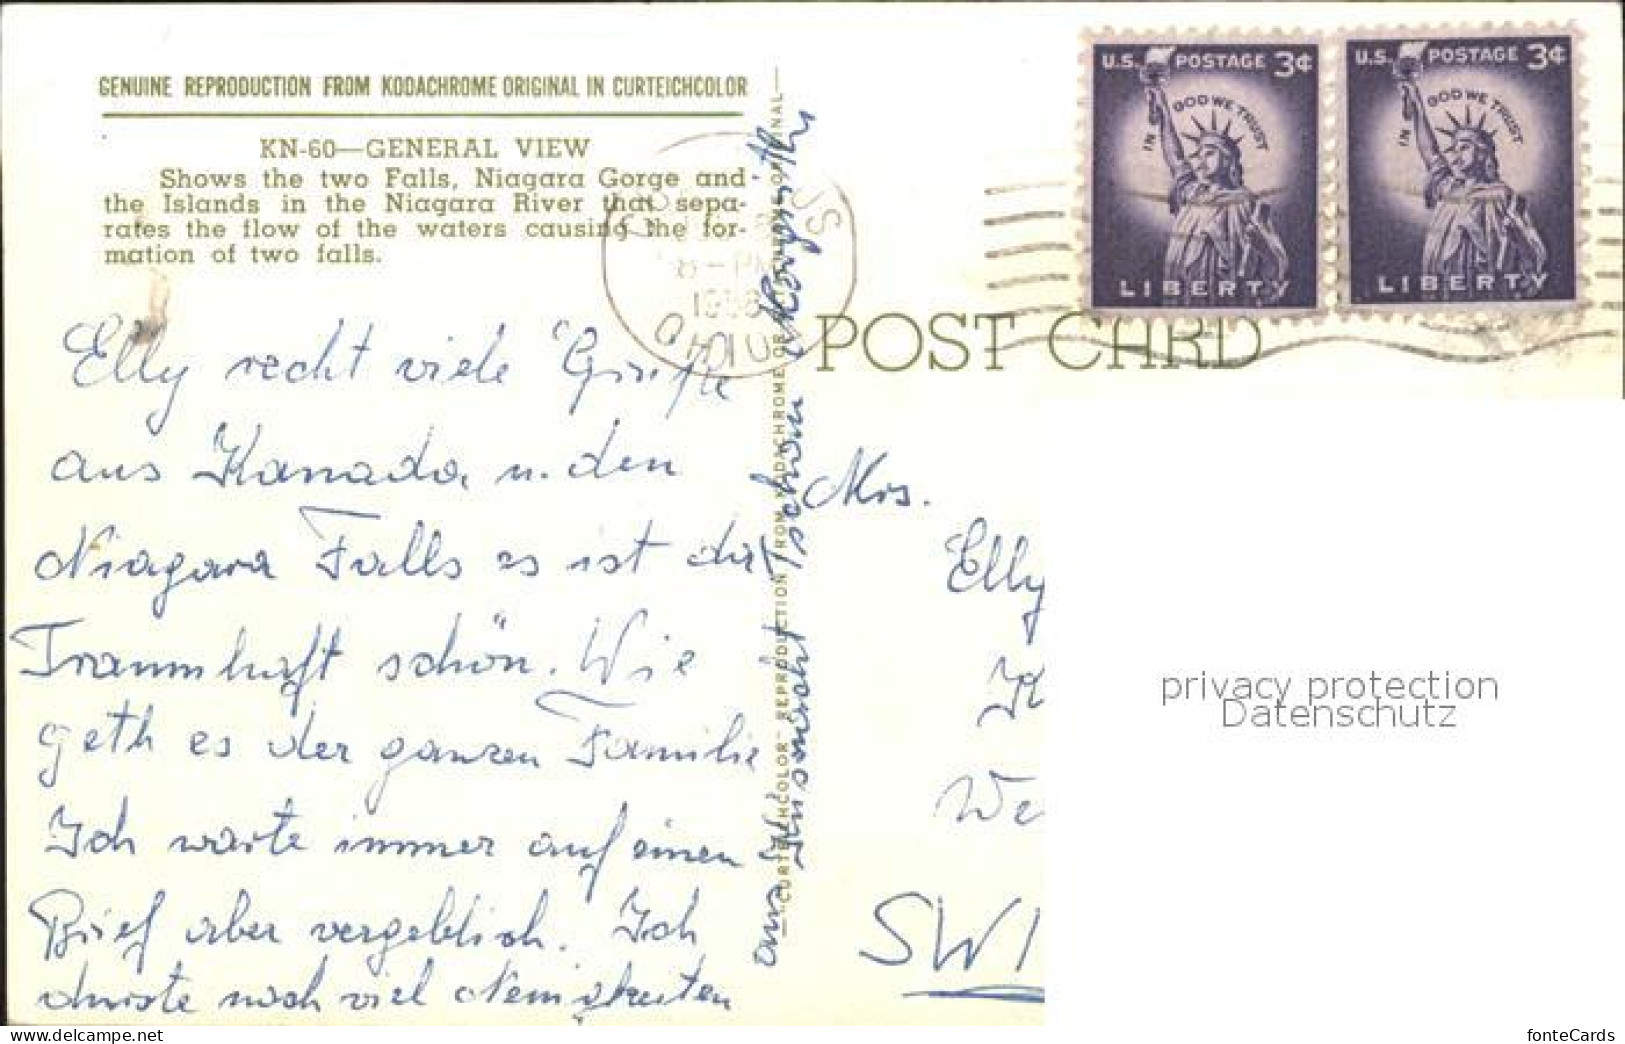 GENUINE REPRODUCTION FROM KODACHROME ORIGINAL IN CURTEICHCOLOR
KN-60—GENERAL VIEW
Shows the two Falls, Niagara Gorge and
the Islands in the Niagara River that sepa-
rates the flow of the waters causing the for-
mation of two falls.
U.S. POSTAGE 3¢
IN GOD WE TRUST
LIBERTY
U.S. POSTAGE 3¢
IN GOD WE TRUST
LIBERTY
8-PM
OHIO
POST CARD
Elly recht viele Grüße
aus Kanada u. den
Niagara Falls es ist da
Traumhaft schön. Wie
geth es der ganzen Familie
Ich warte immer auf einen
Brief aber vergeblich. Ich
noch viel Neuigkeiten
schon
CURTEICHCOLOR REPRODUCTION FROM KODACHROME OR ORIGINAL
Mrs.
Elly
K
We
SWI
privacy protection
Datenschutz
https://www.delcampe.net
fonteCards